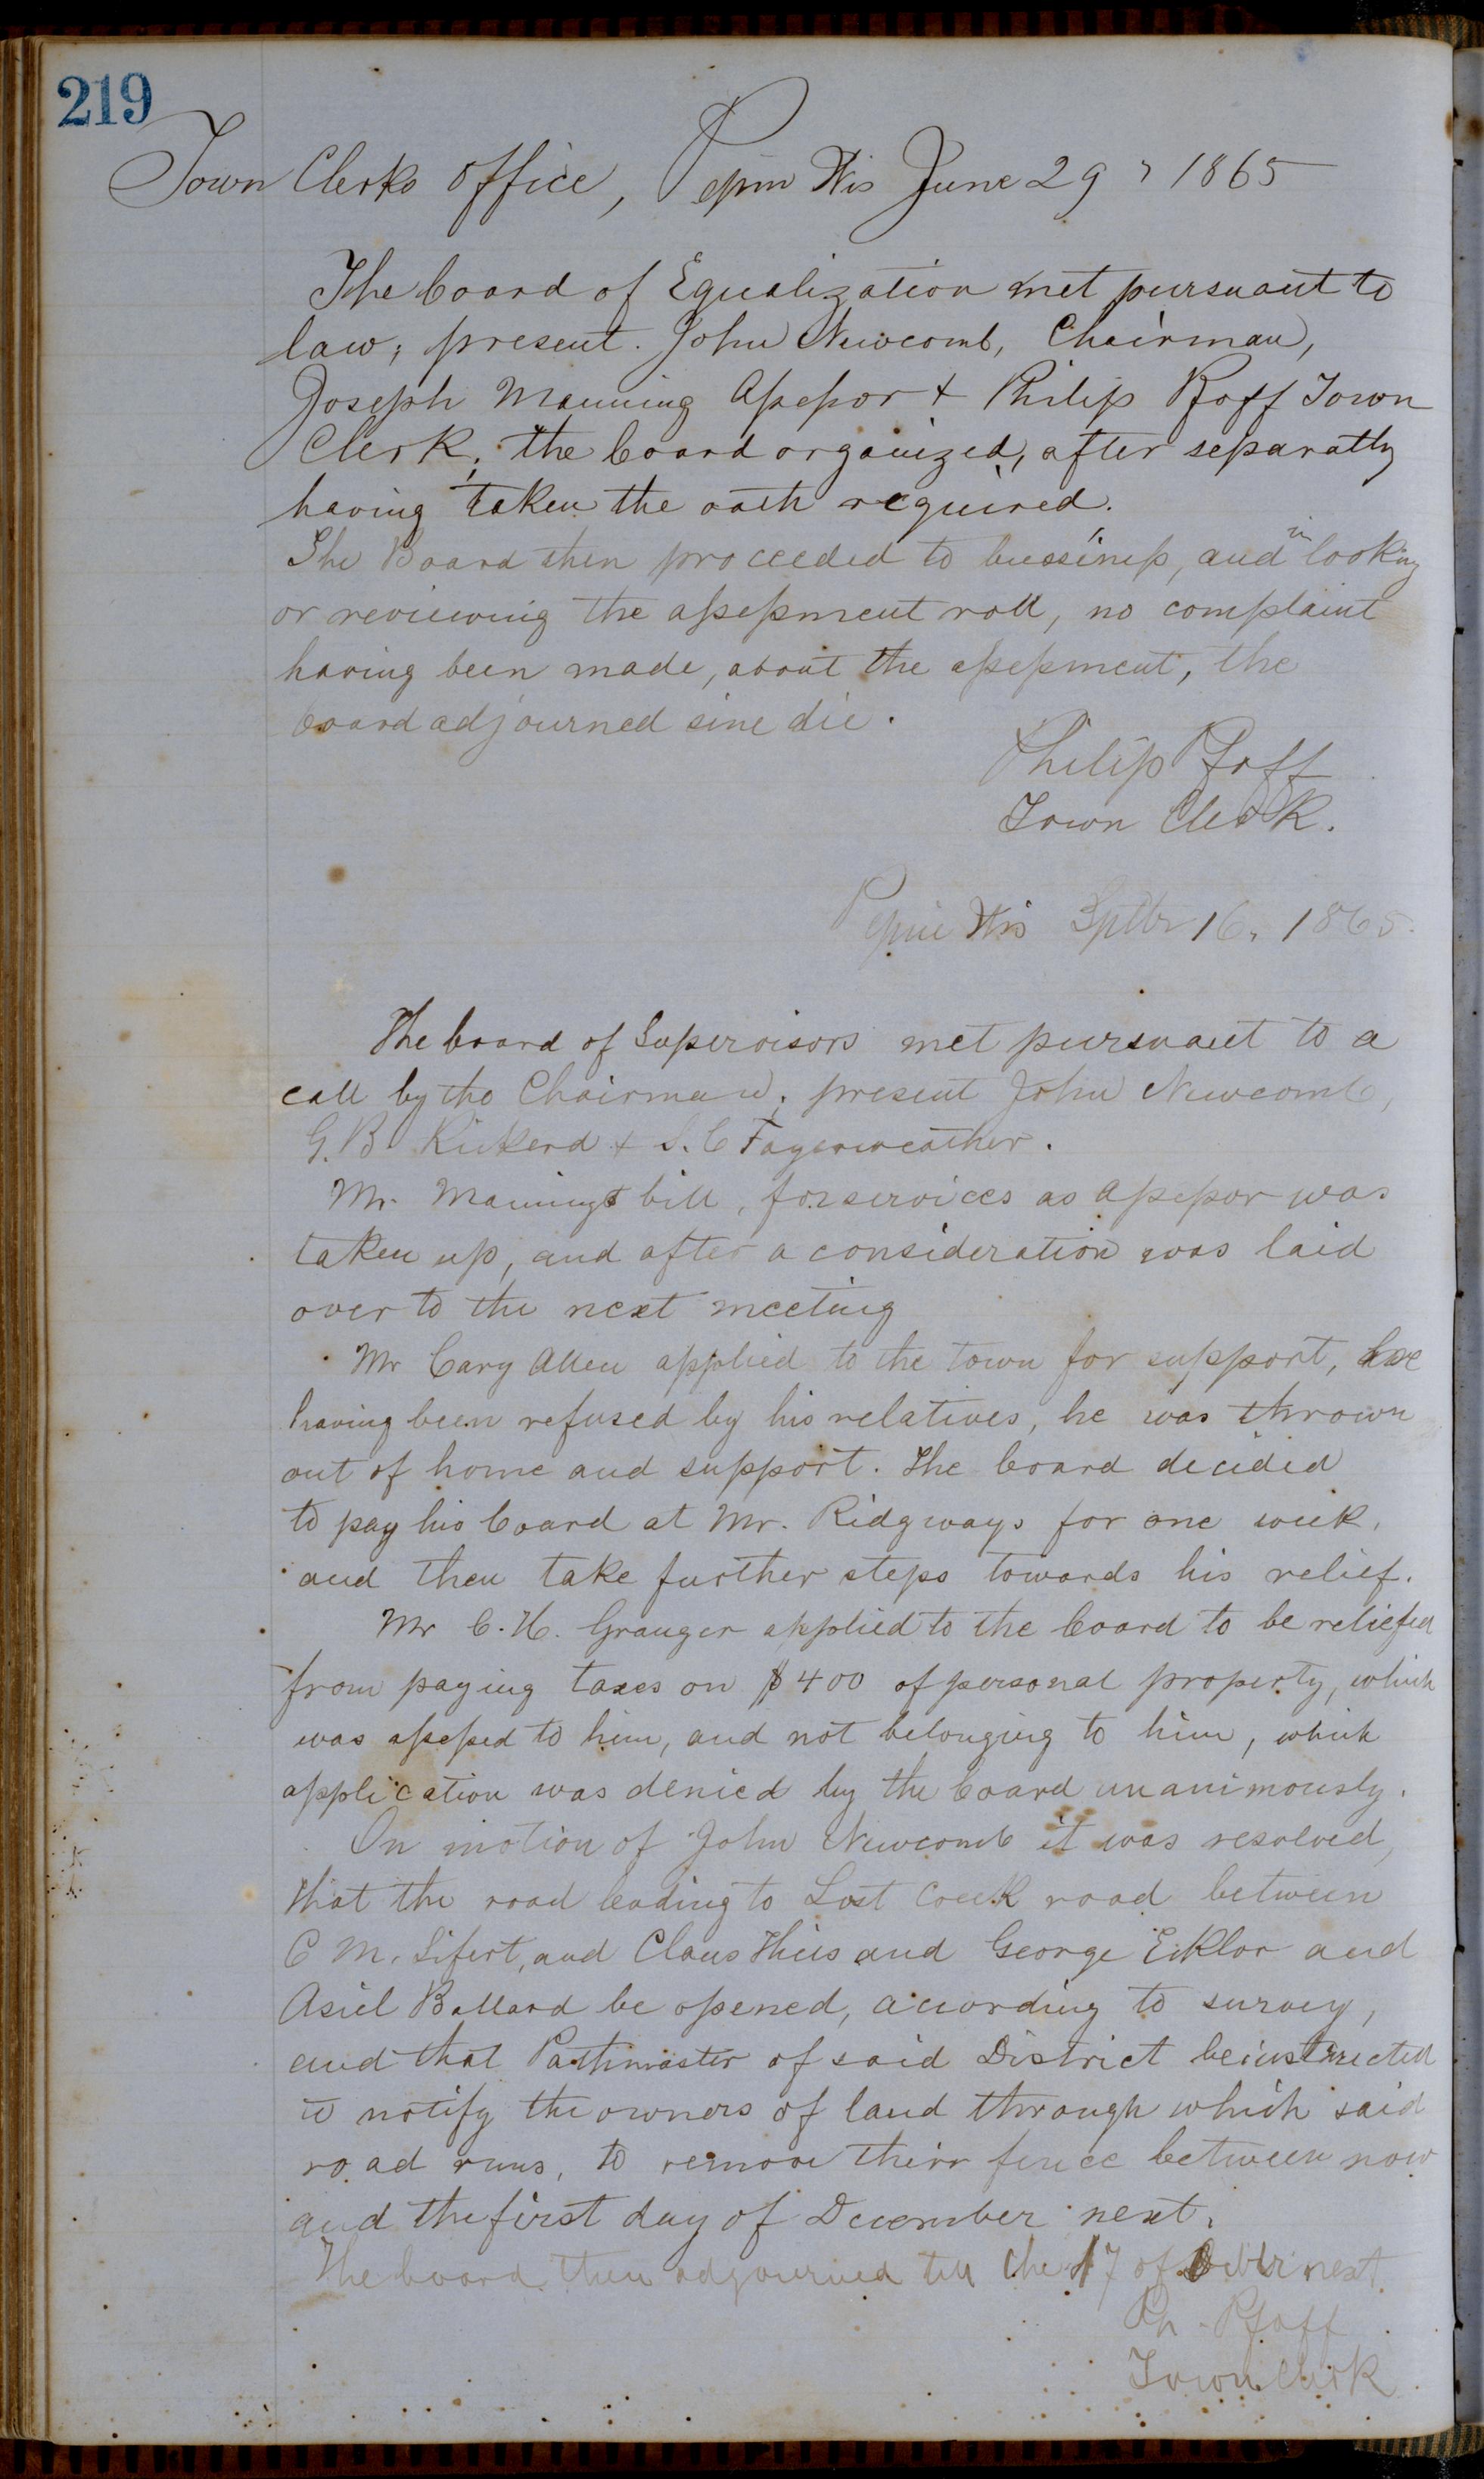 219
Town Clerks Office, Pepin Wis June 29, 1865
The board of Equalization met pursuant to
law; present. John Newcomb, Chairman,
Joseph Manning Assessor + Philip Pfaff Town
Clerk; the board organized, after separatly
having taken the oath required.
The Board then proceeded to bussiness, and in looking
or reviewing the assessment roll, no complaint
having been made, about the assessment, the
board adjourned sine die.
Philip Pfaff
Town Clerk.
Pepin Wis Septbr 16, 1865.
The board of Supervisors met pursuant to a
call by the Chairman; present John Newcomb,
G. B. Rickerd + S. C Fayerweather.
Mr. Mannings bill, for services as Assessor was
taken up, and after a consideration was laid
over to the next meeting
Mr Cary Allen applied to the town for support, he
having been refused by his relatives, he was thrown
out of home and support. The board decided
to pay his board at Mr. Ridgways for one week,
and then take further steps towards his relief.
Mr C. H. Granger applied to the board to be reliefed
from paying taxes on $400 of personal property, which
was assessed to him, and not belonging to him, which
application was denied by the board unanimously.
On motion of John Newcomb it was resolved,
that the road leading to Lost Creek road between
C M. Sifert, and Claus Thies and George Eiklor and
Asiel Ballard be opened, according to survey,
and that Pathmaster of said District be instructed
to notify the owners of land through which said
road runs, to remove their fence between now
and the first day of December next.
The board then adjourned till the 17 of Octbr next
Ph. Pfaff
Town Clerk